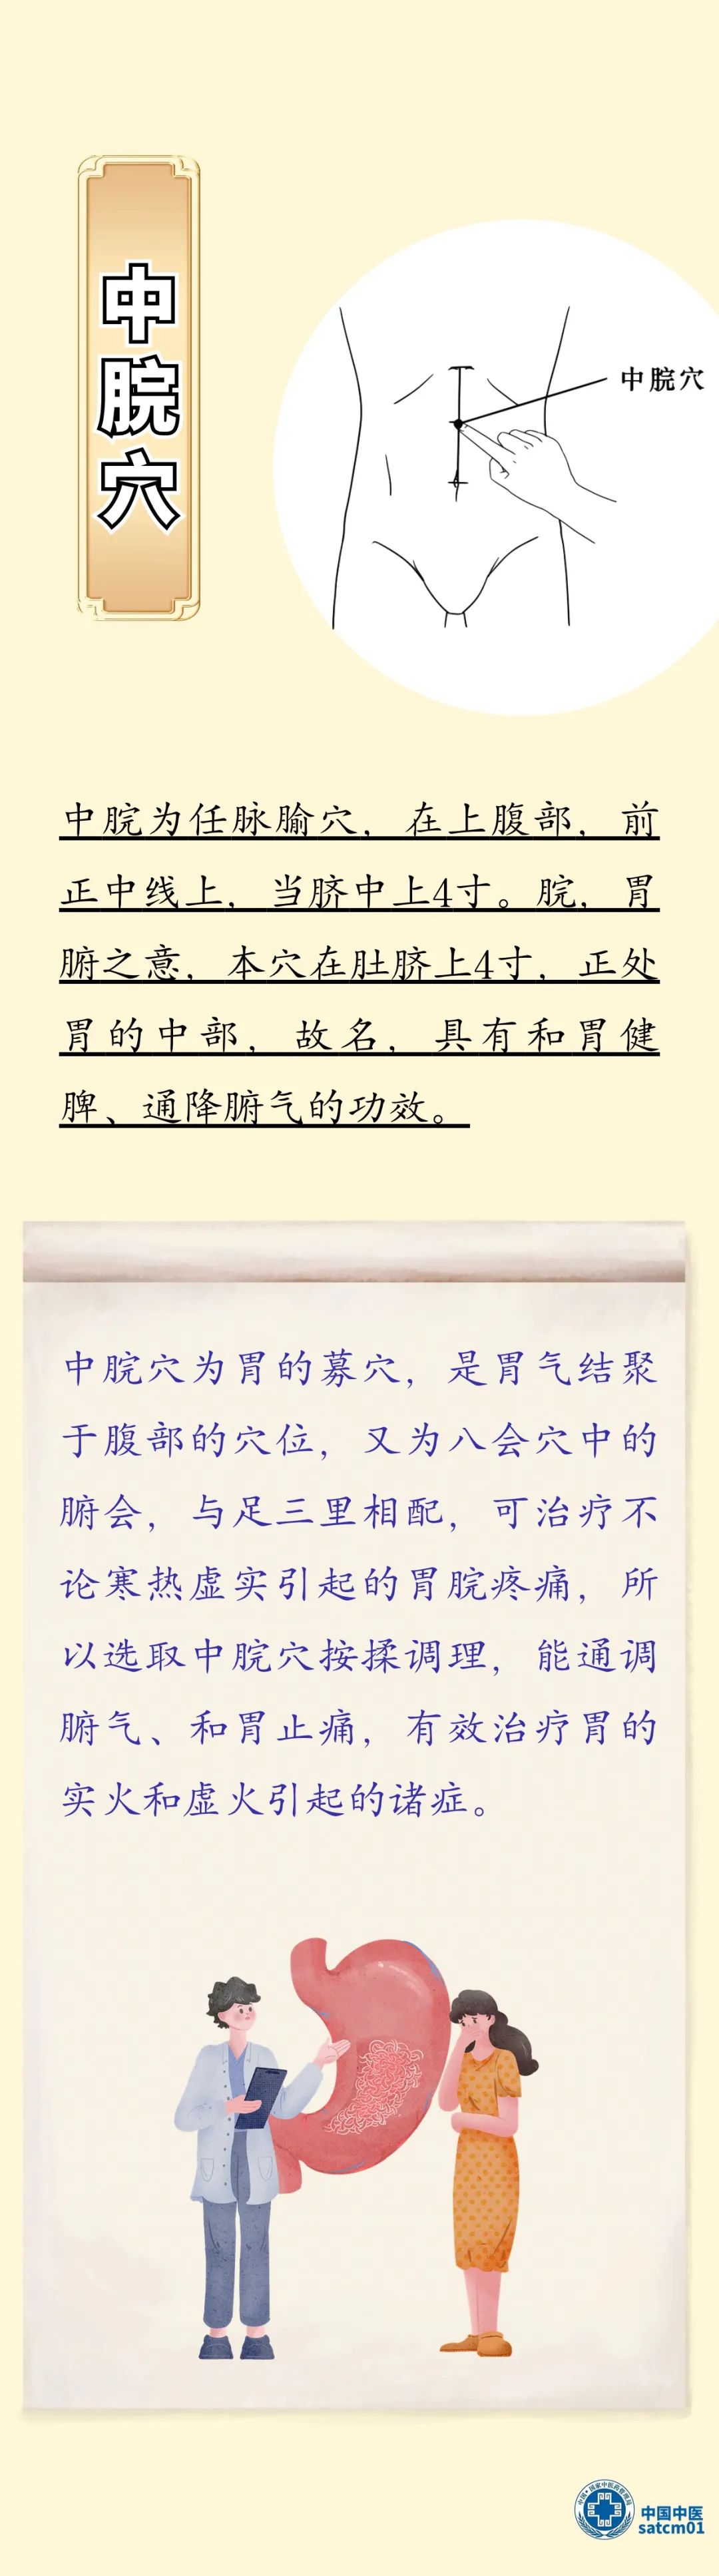 中脘穴
中脘穴
中脘为任脉腧穴，在上腹部，前
正中线上，当脐中上4寸。脘，胃
腑之意，本穴在肚脐上4寸，正处
胃的中部，故名，具有和胃健
脾、通降腑气的功效。
中脘穴为胃的募穴，是胃气结聚
于腹部的穴位，又为八会穴中的
腑会，与足三里相配，可治疗不
论寒热虚实引起的胃脘疼痛，所
以选取中脘穴按揉调理，能通调
腑气、和胃止痛，有效治疗胃的
实火和虚火引起的诸症。
中国中医
satcm01